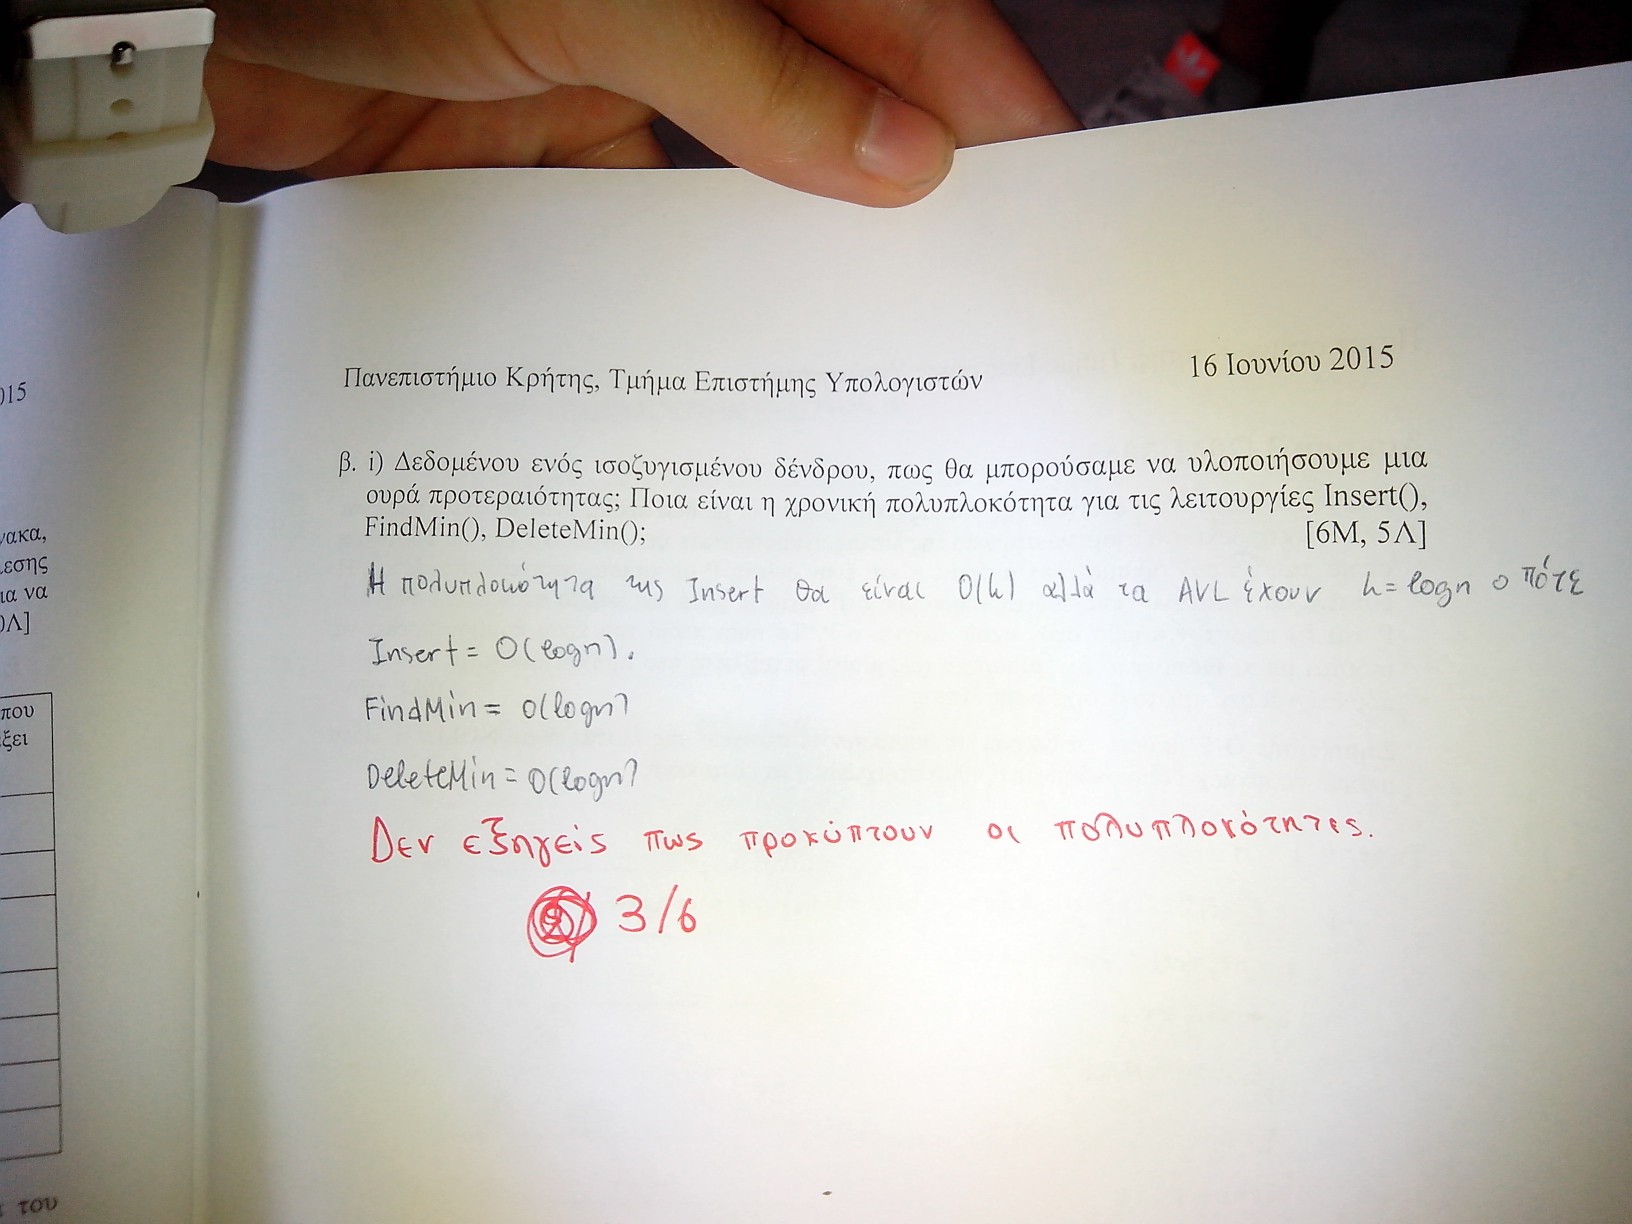 015
νακα,
εσης
ια να
0Λ]
που
ξει
του
Πανεπιστήμιο Κρήτης, Τμήμα Επιστήμης Υπολογιστών
16 Ιουνίου 2015
β. i) Δεδομένου ενός ισοζυγισμένου δένδρου, πως θα μπορούσαμε να υλοποιήσουμε μια
ουρά προτεραιότητας; Ποια είναι η χρονική πολυπλοκότητα για τις λειτουργίες Insert(),
FindMin(), DeleteMin(); [6Μ, 5Λ]
Η πολυπλοκότητα της Insert θα είναι O(h) αλλά τα AVL έχουν h=logn ο πότε
Insert = O(logn).
FindMin = O(logn)
DeleteMin = O(logn)
Δεν εξηγείς πως προκύπτουν οι πολυπλοκότητες.
3/6